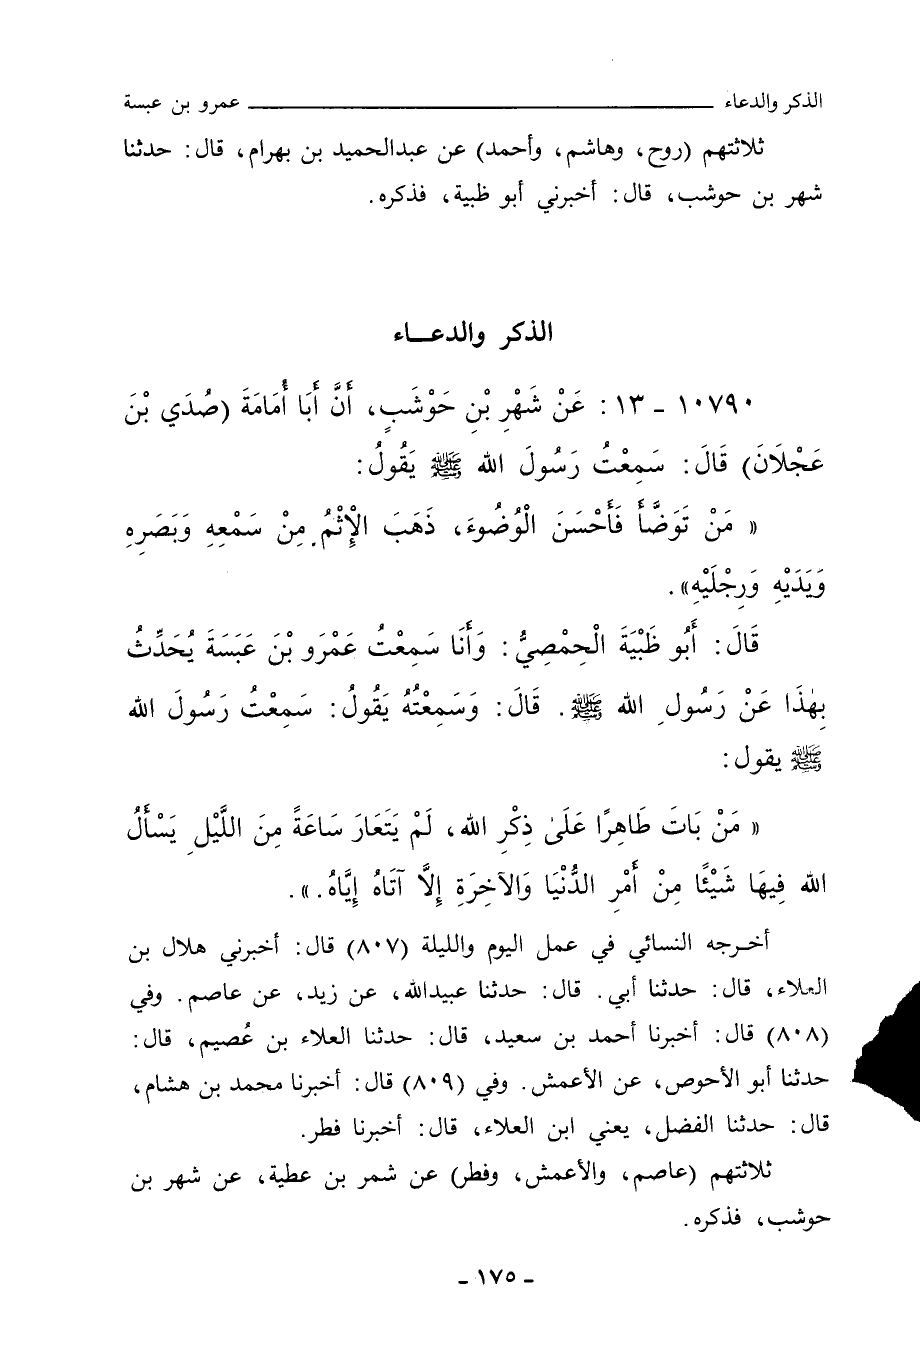 الذكر والدعاء ــــــــــــــــ عمرو بن عبسة
ثلاثتهم (روح، وهاشم، وأحمد) عن عبدالحميد بن بهرام، قال: حدثنا
شهر بن حوشب، قال: أخبرني أبو ظبية، فذكره.
الذكر والدعـــاء
١٠٧٩٠ - ١٣: عَنْ شَهْرِ بْنِ حَوْشَبٍ، أَنَّ أَبَا أُمَامَةَ (صُدَي بْنَ
عَجْلَانَ) قَالَ: سَمِعْتُ رَسُولَ الله ﷺ يَقُولُ:
« مَنْ تَوَضَّأَ فَأَحْسَنَ الْوُضُوءَ، ذَهَبَ الْإِثْمُ مِنْ سَمْعِهِ وَبَصَرِهِ
وَيَدَيْهِ وَرِجْلَيْهِ».
قَالَ: أَبُو ظَبْيَةَ الْحِمْصِيُّ: وَأَنَا سَمِعْتُ عَمْرَو بْنَ عَبَسَةَ يُحَدِّثُ
بِهٰذَا عَنْ رَسُولِ الله ﷺ. قَالَ: وَسَمِعْتُهُ يَقُولُ: سَمِعْتُ رَسُولَ الله
ﷺ يقول:
« مَنْ بَاتَ طَاهِرًا عَلَىٰ ذِكْرِ الله، لَمْ يَتَعَارَ سَاعَةً مِنَ اللَّيْلِ يَسْأَلُ
الله فِيهَا شَيْئًا مِنْ أَمْرِ الدُّنْيَا وَالآخِرَةِ إِلَّا آتَاهُ إِيَّاهُ.».
أخـرجه النسائي في عمل اليوم والليلة (٨٠٧) قال: أخبرني هلال بن
العلاء، قال: حدثنا أبي. قال: حدثنا عبيدالله، عن زيد، عن عاصم. وفي
(٨٠٨) قال: أخبرنا أحمد بن سعيد، قال: حدثنا العلاء بن عُصيم، قال:
حدثنا أبو الأحوص، عن الأعمش. وفي (٨٠٩) قال: أخبرنا محمد بن هشام،
قال: حدثنا الفضل، يعني ابن العلاء، قال: أخبرنا فطر.
ثلاثتهم (عاصم، والأعمش، وفطر) عن شمر بن عطية، عن شهر بن
حوشب، فذكره.
- ١٧٥ -